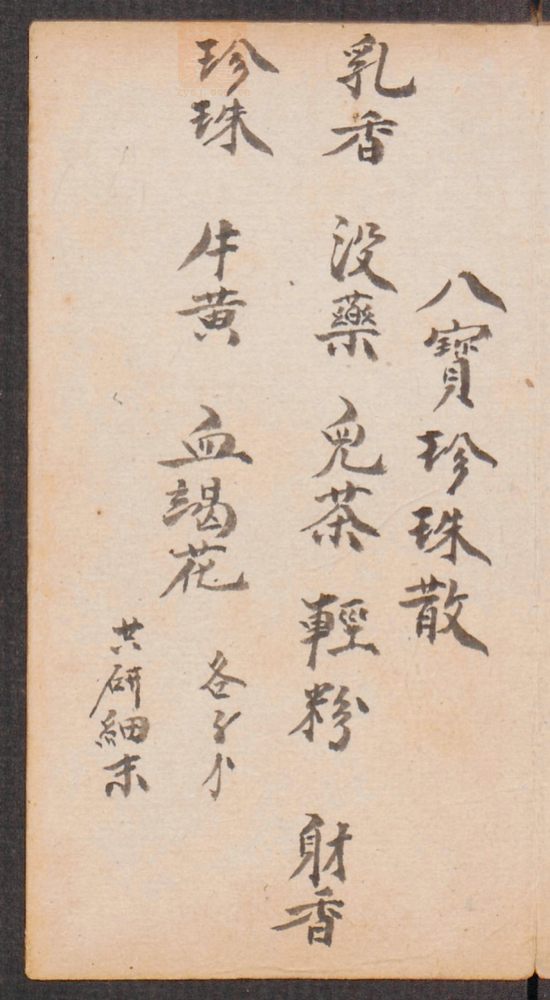 八寶珍珠散
乳香 没藥 兒茶 輕粉 射香
珍珠 牛黄 血竭花 各
共研細末